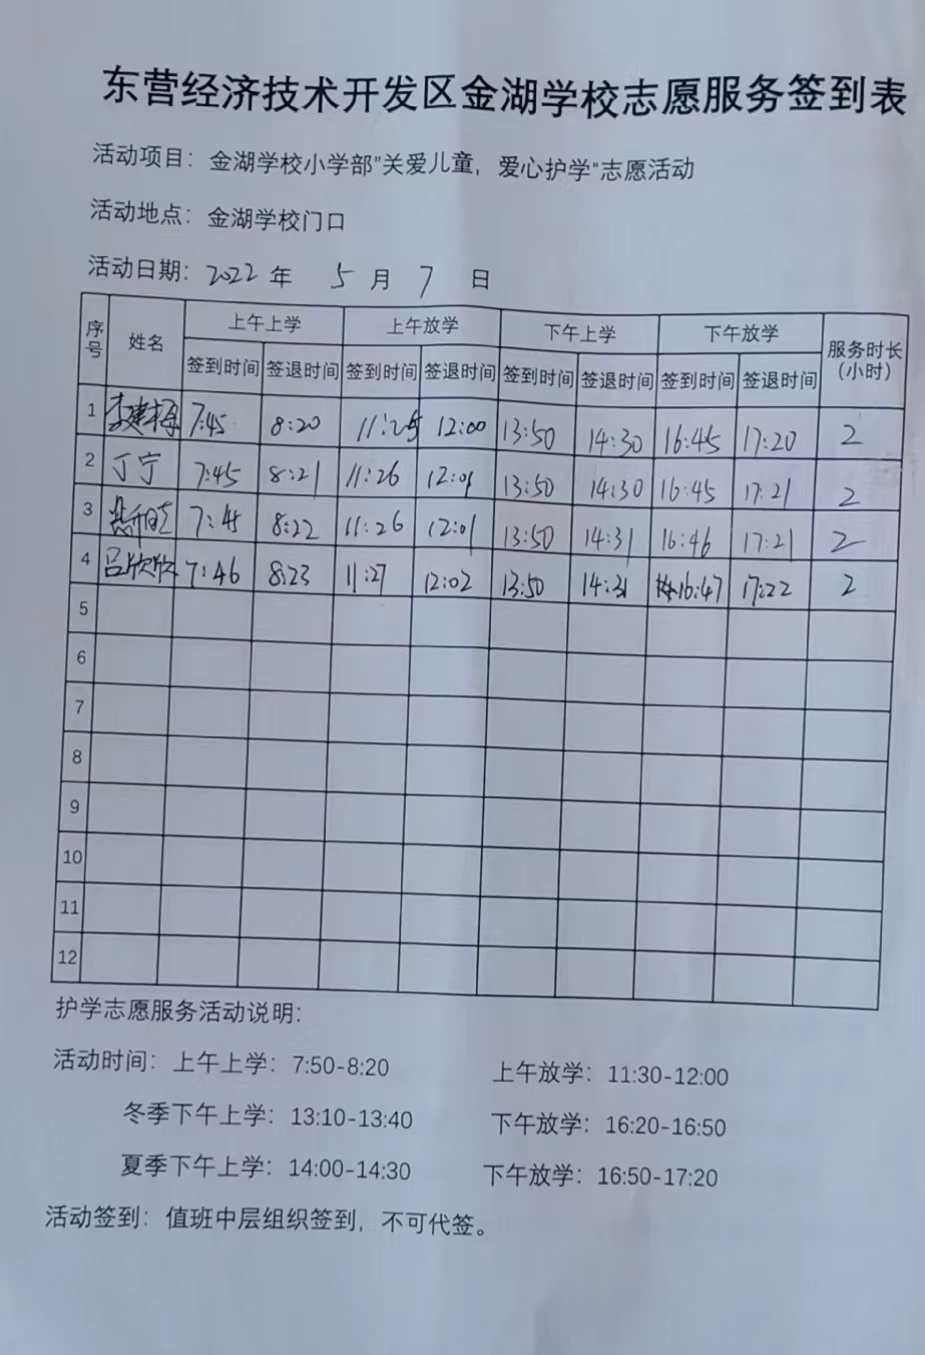 东营经济技术开发区金湖学校志愿服务签到表
活动项目：金湖学校小学部"关爱儿童，爱心护学"志愿活动
活动地点：金湖学校门口
活动日期：2022 年 5 月 7 日
序号 姓名 上午上学 上午放学 下午上学 下午放学 服务时长（小时）
签到时间 签退时间 签到时间 签退时间 签到时间 签退时间 签到时间 签退时间
1 7:45 8:20 11:25 12:00 13:50 14:30 16:45 17:20 2
2 丁宁 7:45 8:21 11:26 12:01 13:50 14:30 16:45 17:21 2
3 7:45 8:22 11:26 12:01 13:50 14:31 16:46 17:21 2
4 吕欣欣 7:46 8:23 11:27 12:02 13:50 14:31 16:47 17:22 2
5
6
7
8
9
10
11
12
护学志愿服务活动说明：
活动时间：上午上学：7:50-8:20 上午放学：11:30-12:00
冬季下午上学：13:10-13:40 下午放学：16:20-16:50
夏季下午上学：14:00-14:30 下午放学：16:50-17:20
活动签到：值班中层组织签到，不可代签。